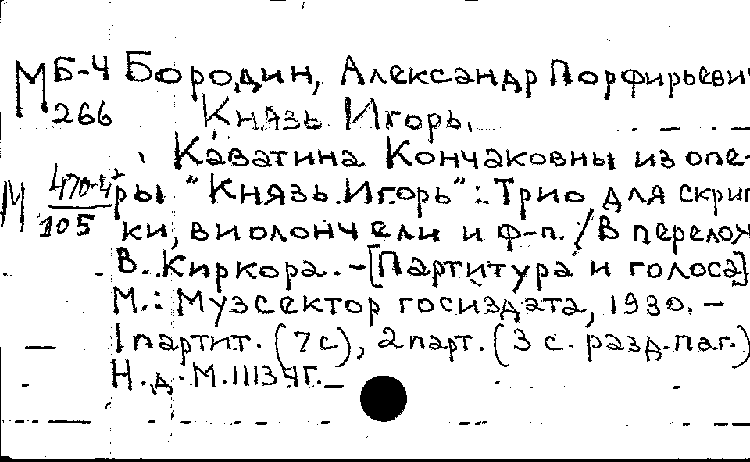 М Б-4 Бородин, Александр Порфирьеви
266 Князь Игорь.
Каватина Кончаковны из опе-
М 470-4 ры "Князь Игорь": Трио для скрип
105 ки, виолончели и ф-п. / В перелож
В. Киркора. - [Партитура и голоса]
М.: Музсектор госиздата, 1930. -
1 партит. (7 с), 2 парт. (3 с. разд. паг.)
Н.д. М.11134Г.